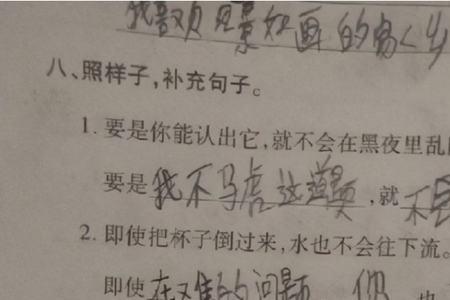 我喜欢风景如画的家乡
八、照样子,补充句子。
1. 要是你能认出它,就不会在黑夜里乱
要是我不马虎这道题,就不
2. 即使把杯子倒过来,水也不会往下流。
即使在难的问题 你 也